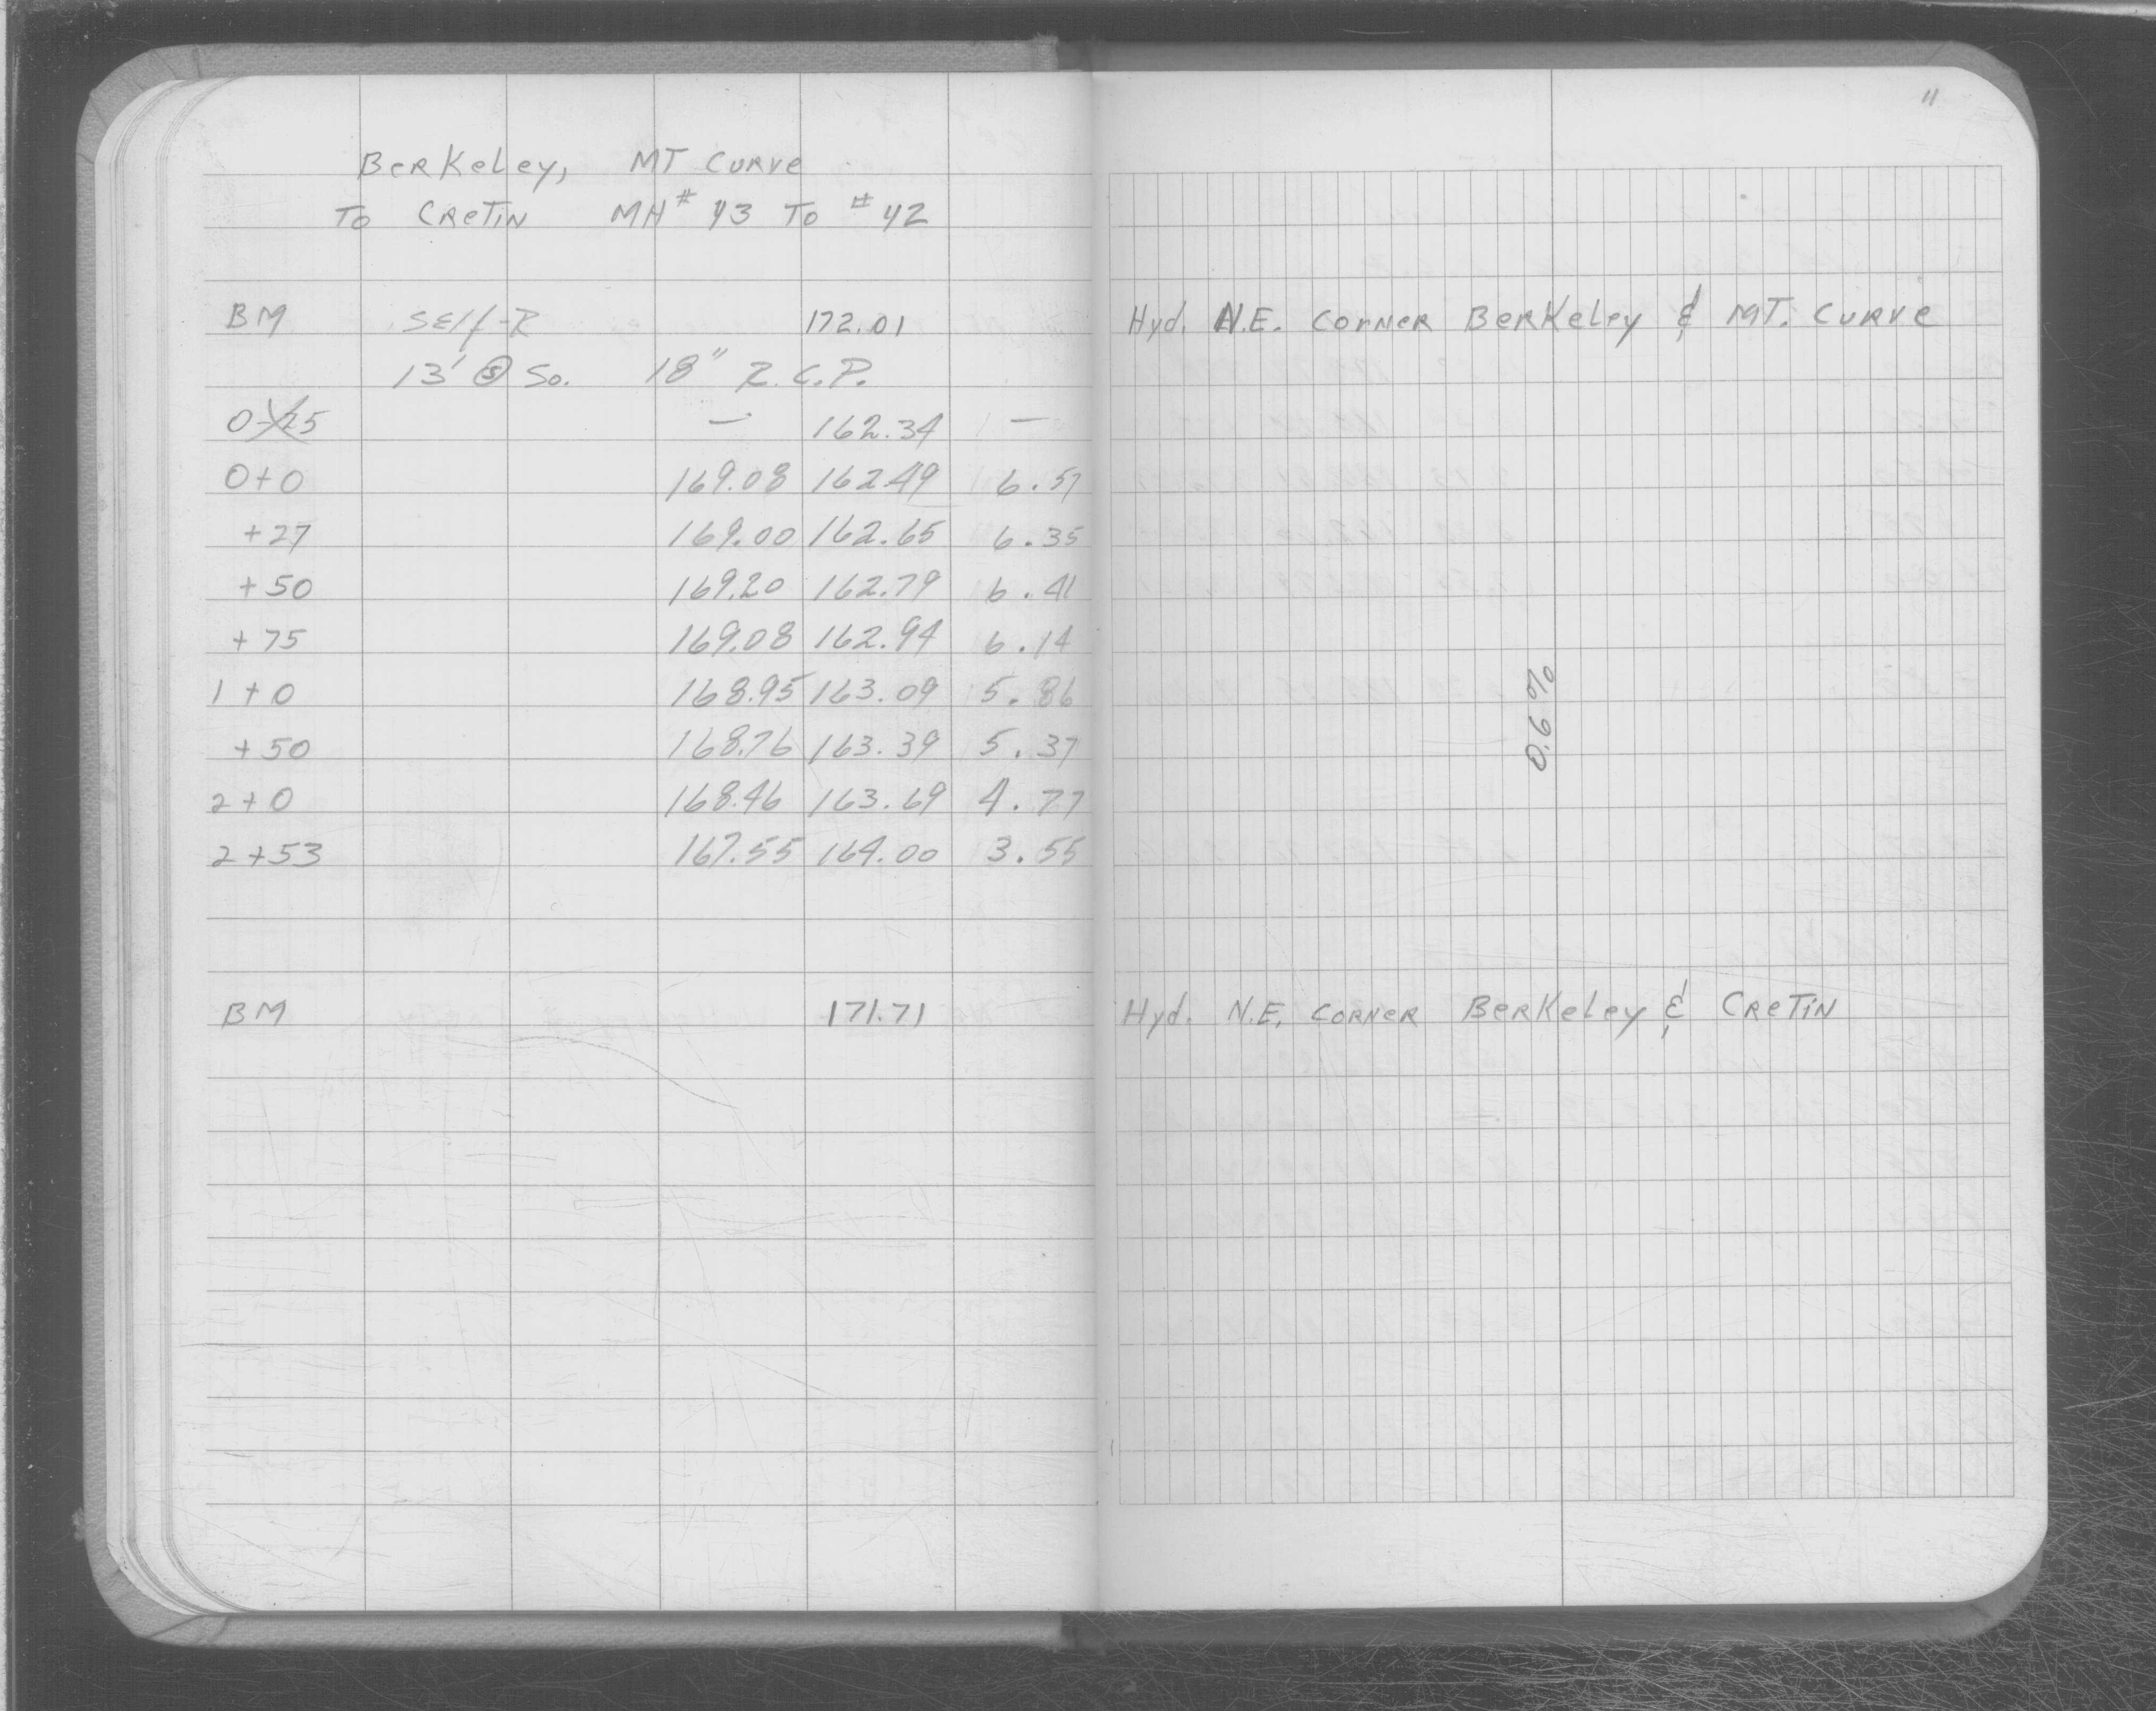 11
Berkeley, MT Curve
To Cretin MH # 43 To # 42
BM Self-R 172.01 Hyd. N.E. Corner Berkeley & MT. Curve
13' Ⓢ So. 18" R.C.P.
0-25 — 162.34 —
0+0 169.08 162.49 6.59
+27 169.00 162.65 6.35
+50 169.20 162.79 6.41
+75 169.08 162.94 6.14
1+0 168.95 163.09 5.86
0.6%
+50 168.76 163.39 5.37
2+0 168.46 163.69 4.77
2+53 167.55 164.00 3.55
BM 171.71 Hyd. N.E. Corner Berkeley & Cretin